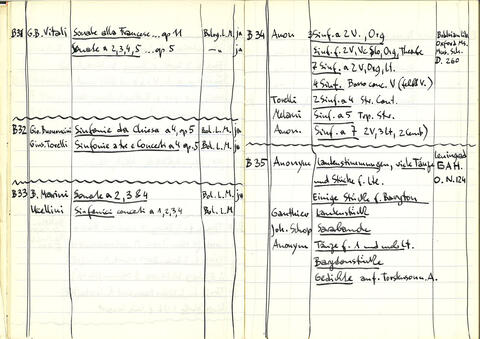 B31 G.B. Vitali Sonate alla Francese... op 11 Bolog. L.M. ja
Sonate a 2,3,4,5 ... op 5 -"- ja
B32 Gio. Bononcini Sinfonie da Chiesa a 4, op 5 Bol. L.M. ja
Gius. Torelli Sinfonie a tre e Concerti a 4, op 5 Bol. L.M. ja
B33 B. Marini Sonate a 2, 3 & 4 Bol. L.M. ja
Uccellini Sinfonici concerti a 1,2,3,4 Bol. L.M.
B34 Anon 3 Sinf. a 2 V., Org Bodleian Lib.
Sinf. f. 2V, Vc Solo, Org, Theorbe Oxford Ms.
7 Sinf. a 2V, Org, Lt. Mus. Sch.
4 Sinf. Basso conc. V (fehlt V.) D. 260
Torelli 2 Sinf. a 4 Str. Cont.
Melani Sinf. a 5 Trp. Str.
Anon. Sinf. a 7 2V, 3 Lt, 2 Cont)
B35 Anonym Lautenstimmungen, viele Tänze Leningrad
und Stücke f. Lte. БАН
Einige Stücke f. Baryton O. N. 124
Gaulthier Lautenstücke
Joh. Schop Sarabande
Anonym Tänze f. 1 und mehr Lt.
Barydonstücke
Gedichte auf Torstensonn. A.